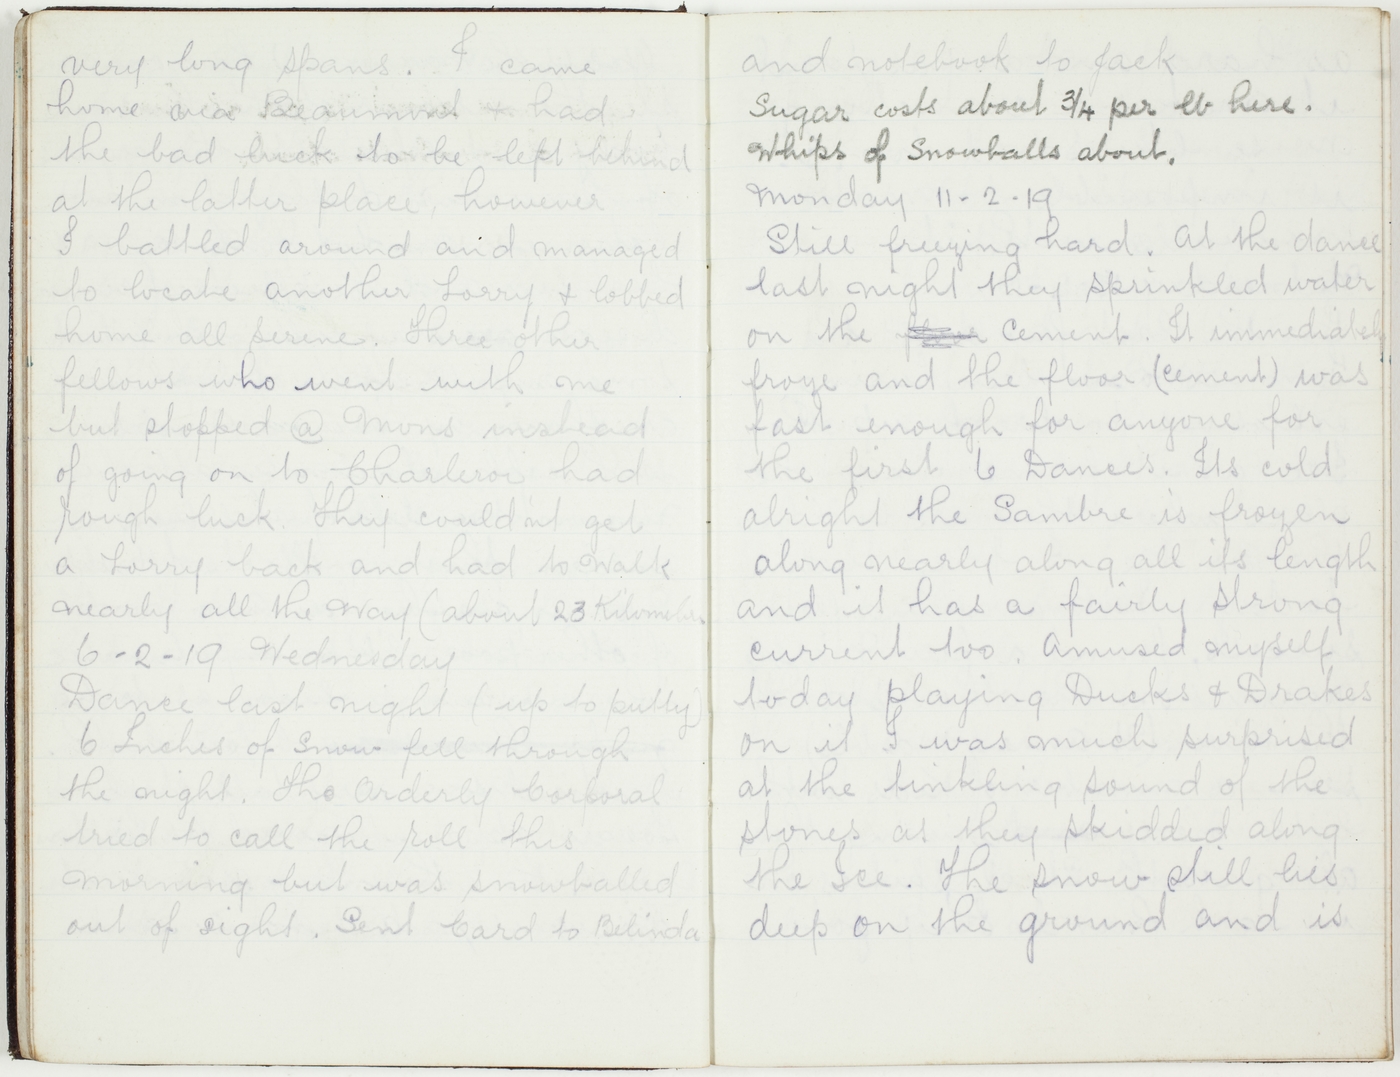 very long spans. I came
home via Beaumont & had
the bad luck to be left behind
at the latter place, however
I battled around and managed
to locate another Lorry & lobbed
home all serene. Three other
fellows who went with me
but stopped @ Mons instead
of going on to Charleroi had
rough luck. They couldn't get
a Lorry back and had to walk
nearly all the way (about 23 Kilometres
6-2-19 Wednesday
Dance last night (up to putty)
6 Inches of Snow fell through
the night. The Orderly Corporal
tried to call the roll this
morning but was snowballed
out of sight. Sent Card to Belinda
and notebook to Jack
Sugar costs about 3/4 per lb here.
Whips of Snowballs about.
Monday 11-2-19
Still freezing hard. At the dance
last night they sprinkled water
on the floor Cement. It immediately
froze and the floor (cement) was
fast enough for anyone for
the first 6 Dances. Its cold
alright the Sambre is frozen
along nearly along all its length
and it has a fairly strong
current too. Amused myself
today playing Ducks & Drakes
on it I was much surprised
at the tinkling sound of the
stones as they skidded along
the Ice. The snow still lies
deep on the ground and is